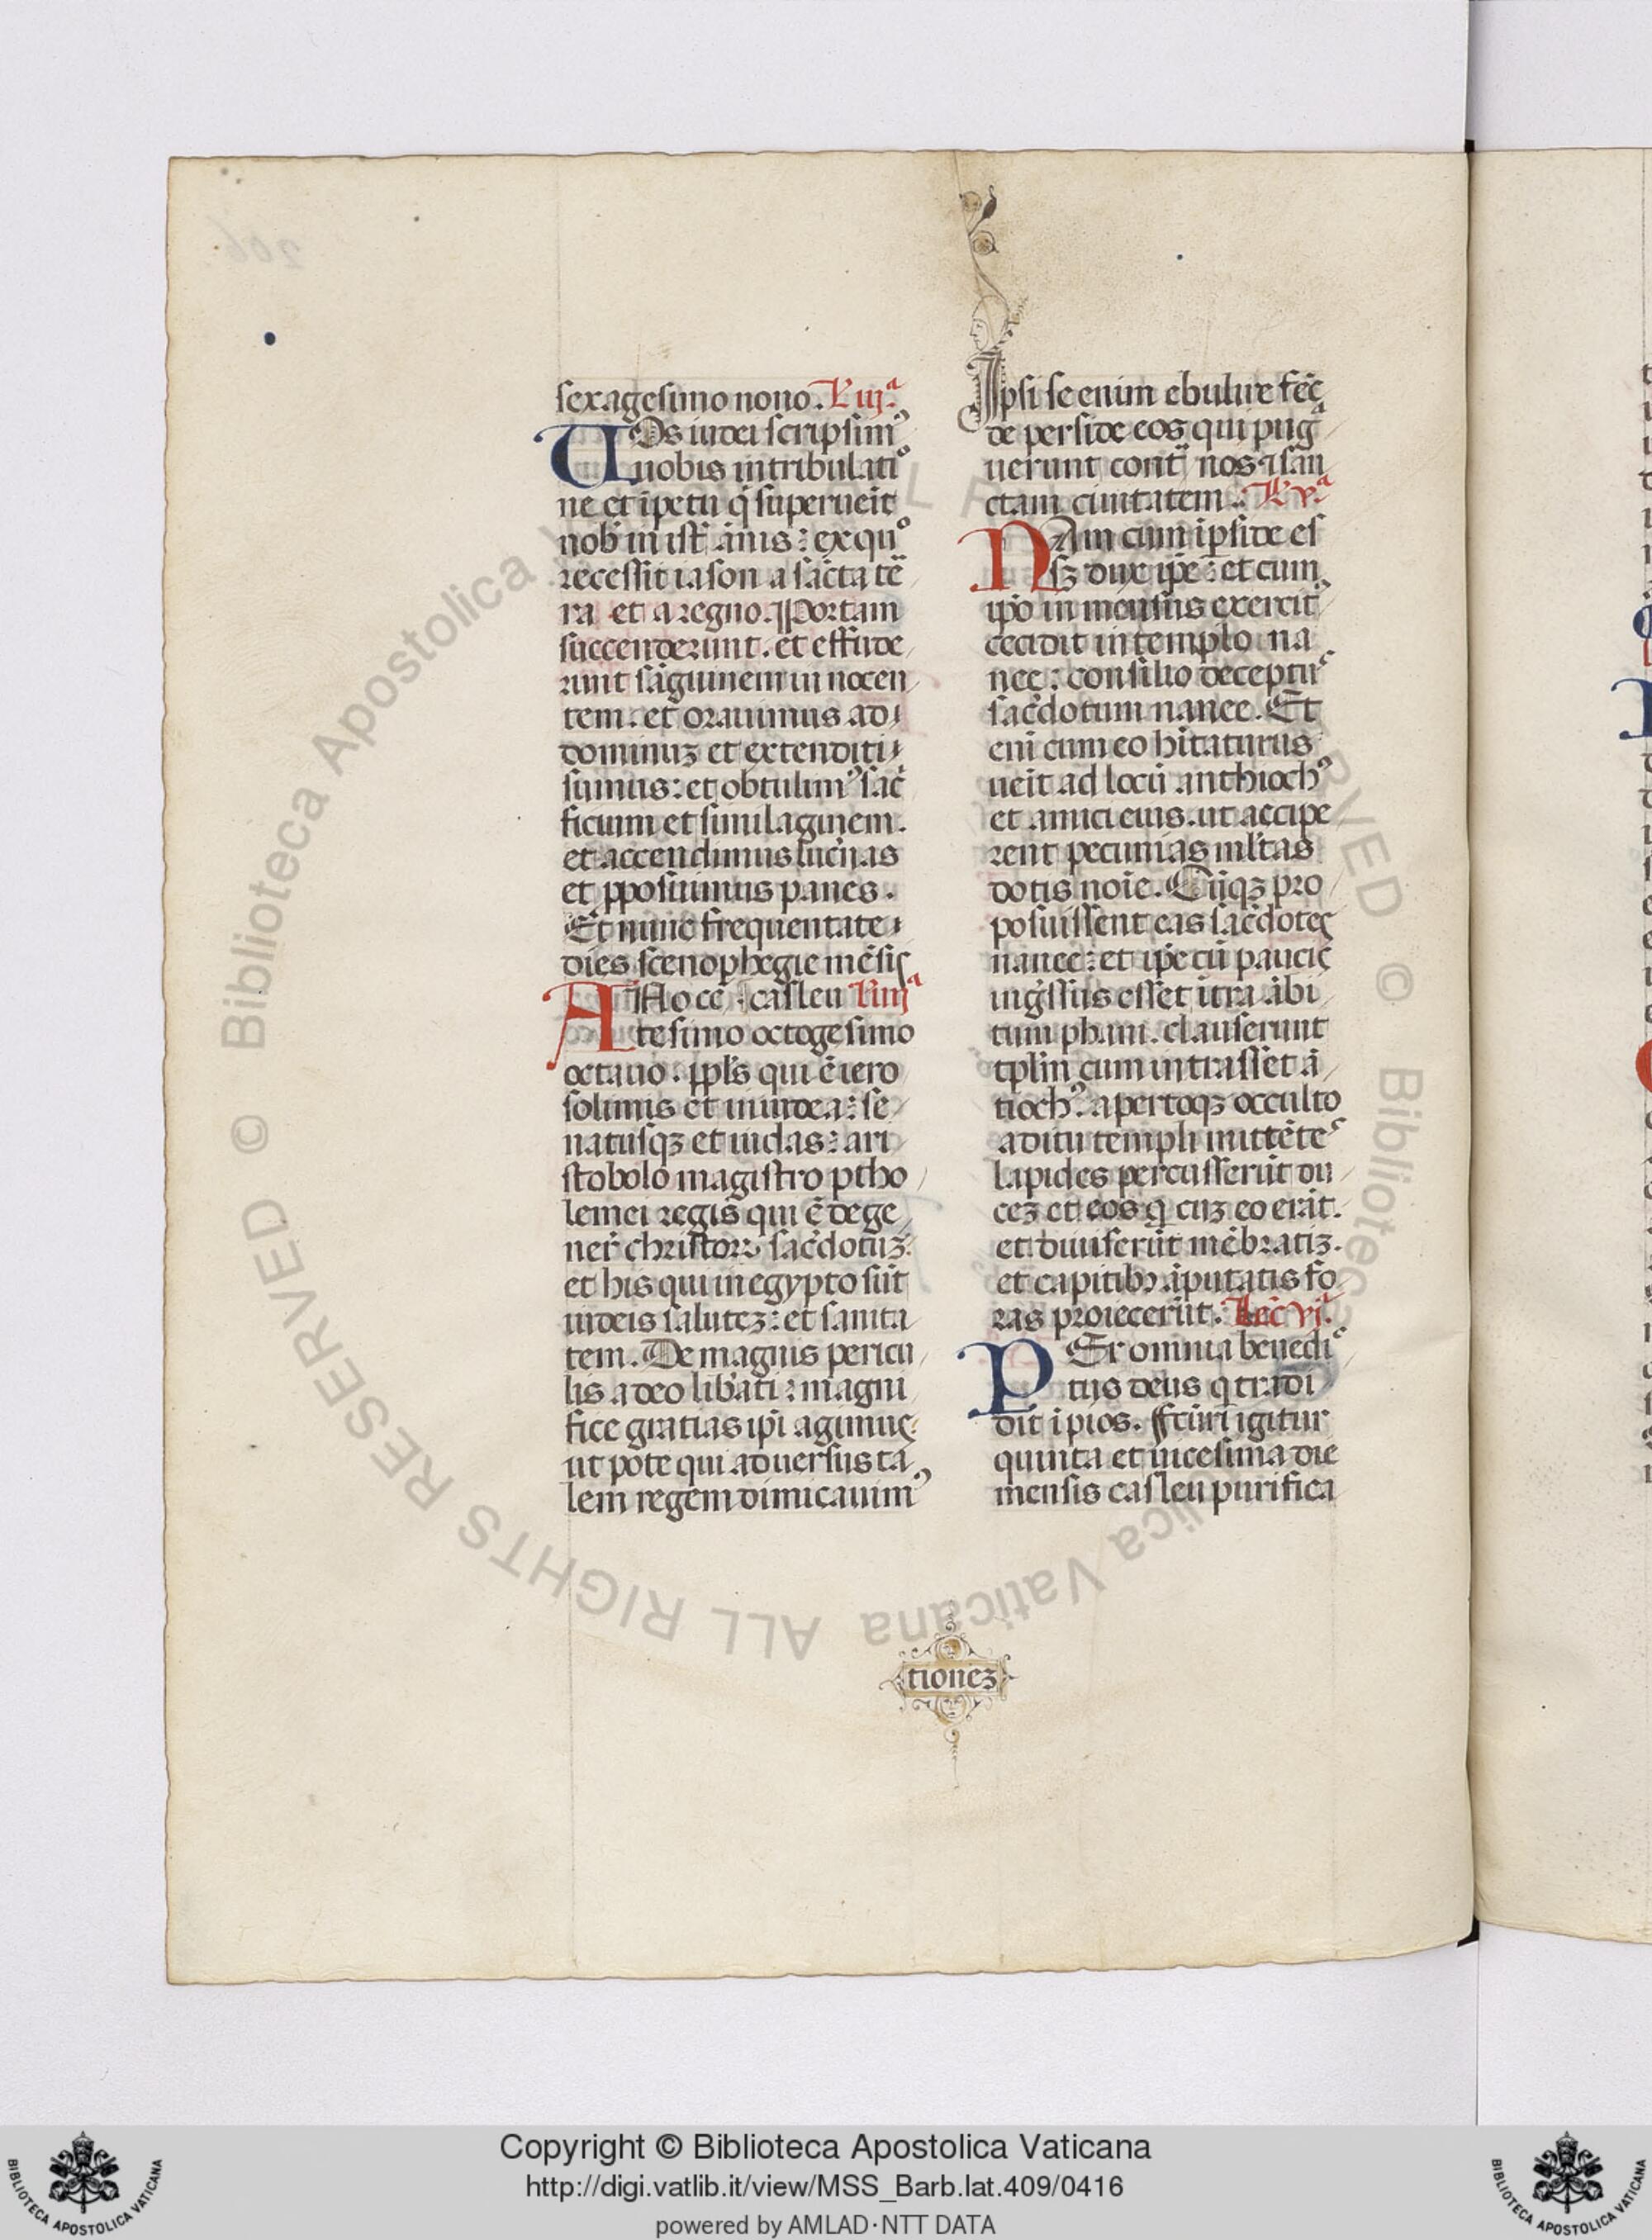 sexagesimo nono. L̃ iij.ª
UOs iudei scripsim᷒
uobis in tribulatiº
ne et ĩpetu q̃ superueĩt
nob̃ in ist̃ ãnis : ex quº
recessit iason a sãcta tẽ
ra et a regno. Portam
succenderunt. et effude
runt sãguinem innocen
tem. et orauimus ad
dominuꝫ et exauditi
sumus: et obtulim᷒ sac̃
ficium et similaginem.
et accendimus lucñas
et ꝓposuimus panes.
Et nunc frequentate
dies scenophegie mẽsis
ANno cẽ : casleu L̃ iiijª
tesimo octogesimo
octauo. ppl̃s qui ẽ iero
solimis et in iudea: se
natusqꝫ et iudas: ari
stobolo magistro ptho
lemei regis qui ẽ de ge
ner̃ christoꝝ sac̃dotuꝫ.
et his qui in egypto sũt
iudeis saluteꝫ: et sanita
tem. De magnis pericu
lis a deo lib̃ati: magni
fice gratias ip̃i agimus
ut pote qui aduersus ta
lem regem dimicauim᷒
Ipsi se enim ebulire fec̃
de perside eos qui pugª
uerunt cont̃ nos ⁊ san
ctam ciuitatem. L̃ v.ª
NAm cum ĩ perside es
sꝫ dux ip̃e: et cum
ip̃o inmensus exercit᷒
cecidit in templo na
nee: consilio deceptus
sac̃dotum nanee. Et
eni cum eo hĩtaturus
ueĩt ad locũ anthioch᷒
et amici eius. ut accipe
rent pecunias ml̃tas
dotis noĩe. Cũqꝫ pro
posuissent eas sac̃dotes
nanee: et ip̃e cũ paucis
ingr̃ssus esset ĩtra ãbi
tum phani. clauserunt
tpl̃m cum intrasset ã
tioch᷒. apertoqꝫ occulto
aditu templi mittẽtes
lapides percusserũt du
ceꝫ et eos q̃ cuꝫ eo erãt.
et diuiserũt mẽbratiꝫ.
et capitibꝫ ãputatis fo
ras proiecerũt. Lec̃ vj.ª
PEr omnia benedi
tus deus q̃ tradi
dit ĩpios. Fc̃uri igitur
quinta et uicesima die
mensis casleu purifica
tioneꝫ
© Biblioteca Apostolica Vaticana ALL RIGHTS RESERVED
Copyright © Biblioteca Apostolica Vaticana
http://digi.vatlib.it/view/MSS_Barb.lat.409/0416
powered by AMLAD·NTT DATA
BIBLIOTECA APOSTOLICA VATICANA
BIBLIOTECA APOSTOLICA VATICANA